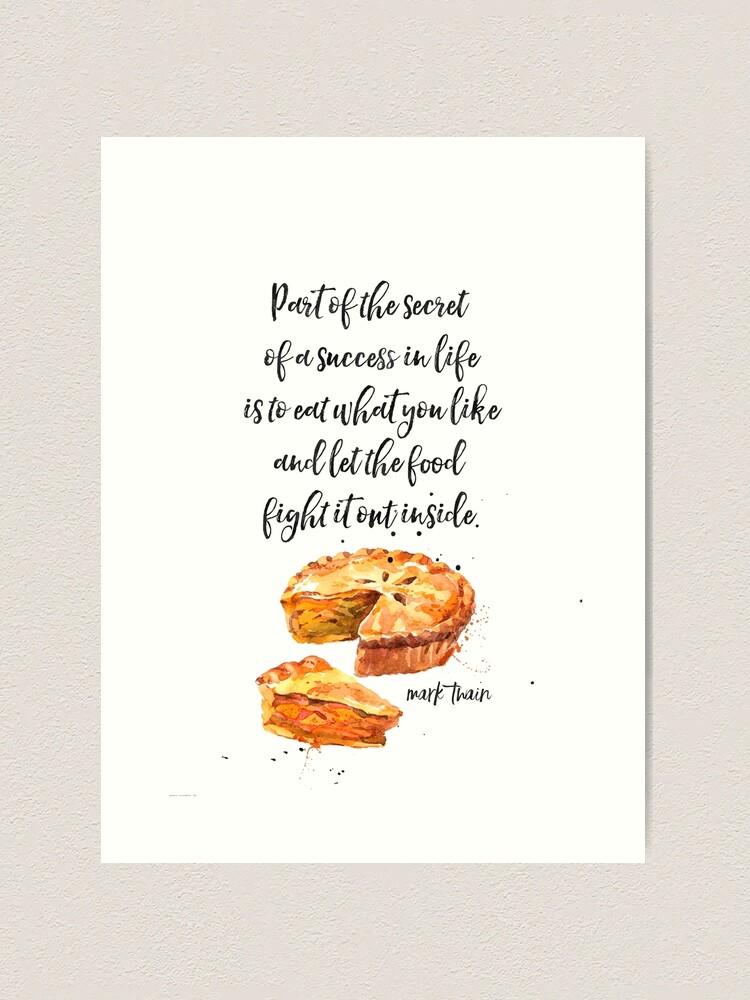 Part of the secret
of a success in life
is to eat what you like
and let the food
fight it out inside.
mark twain